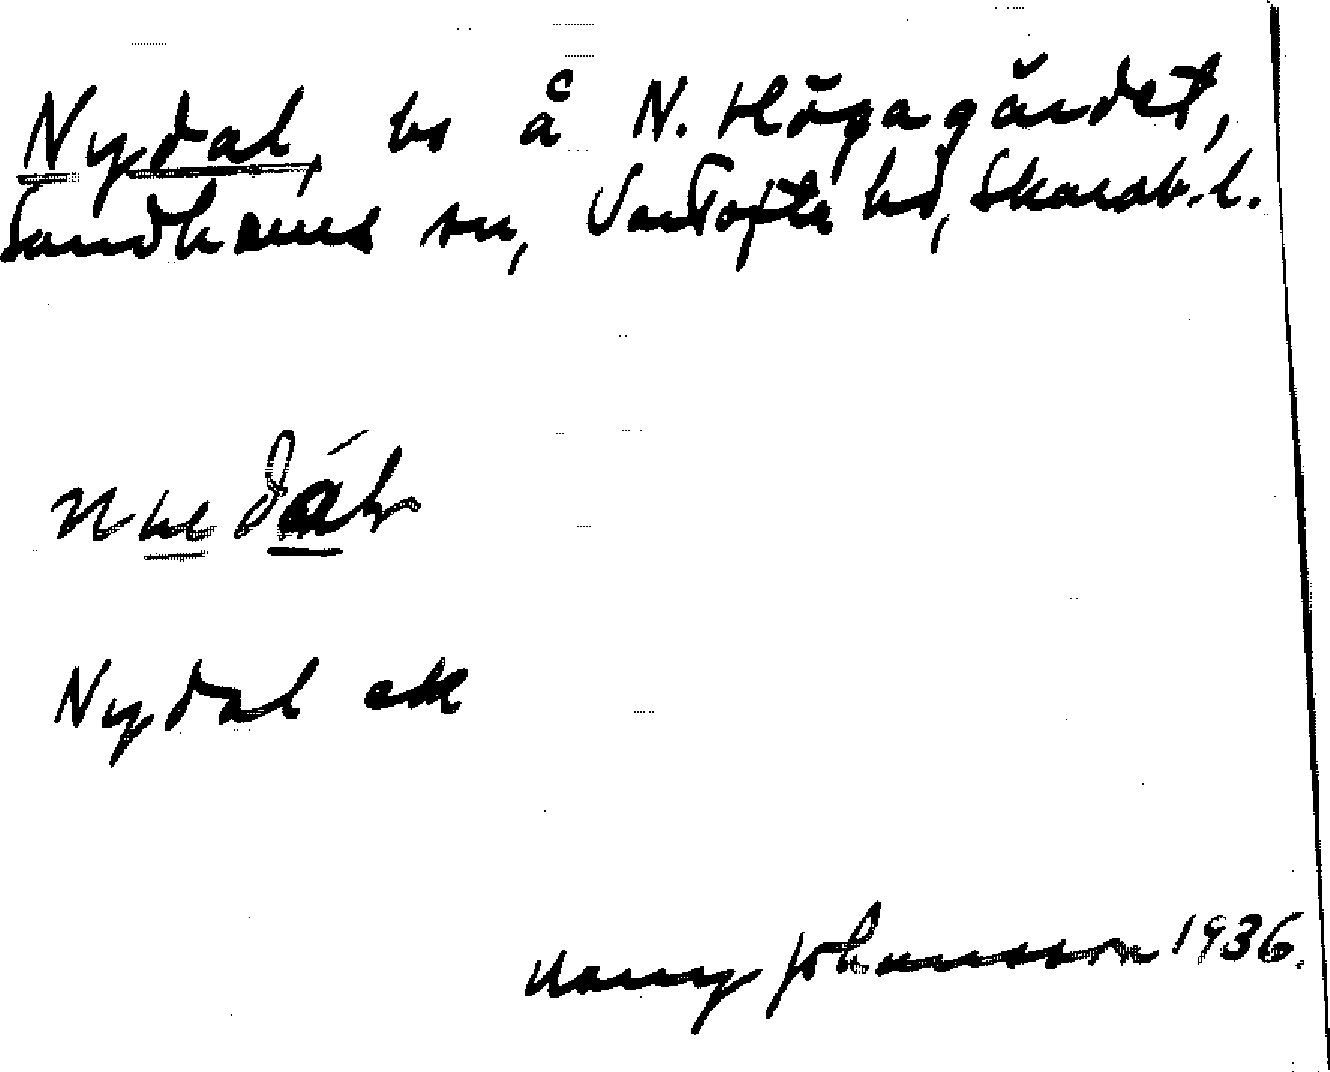 Nydal, bs å N. Högagärdet,
Sandhems sn, Vartofta hd, Skarab. l.
Nydal ek
Harry Johansson 1936.